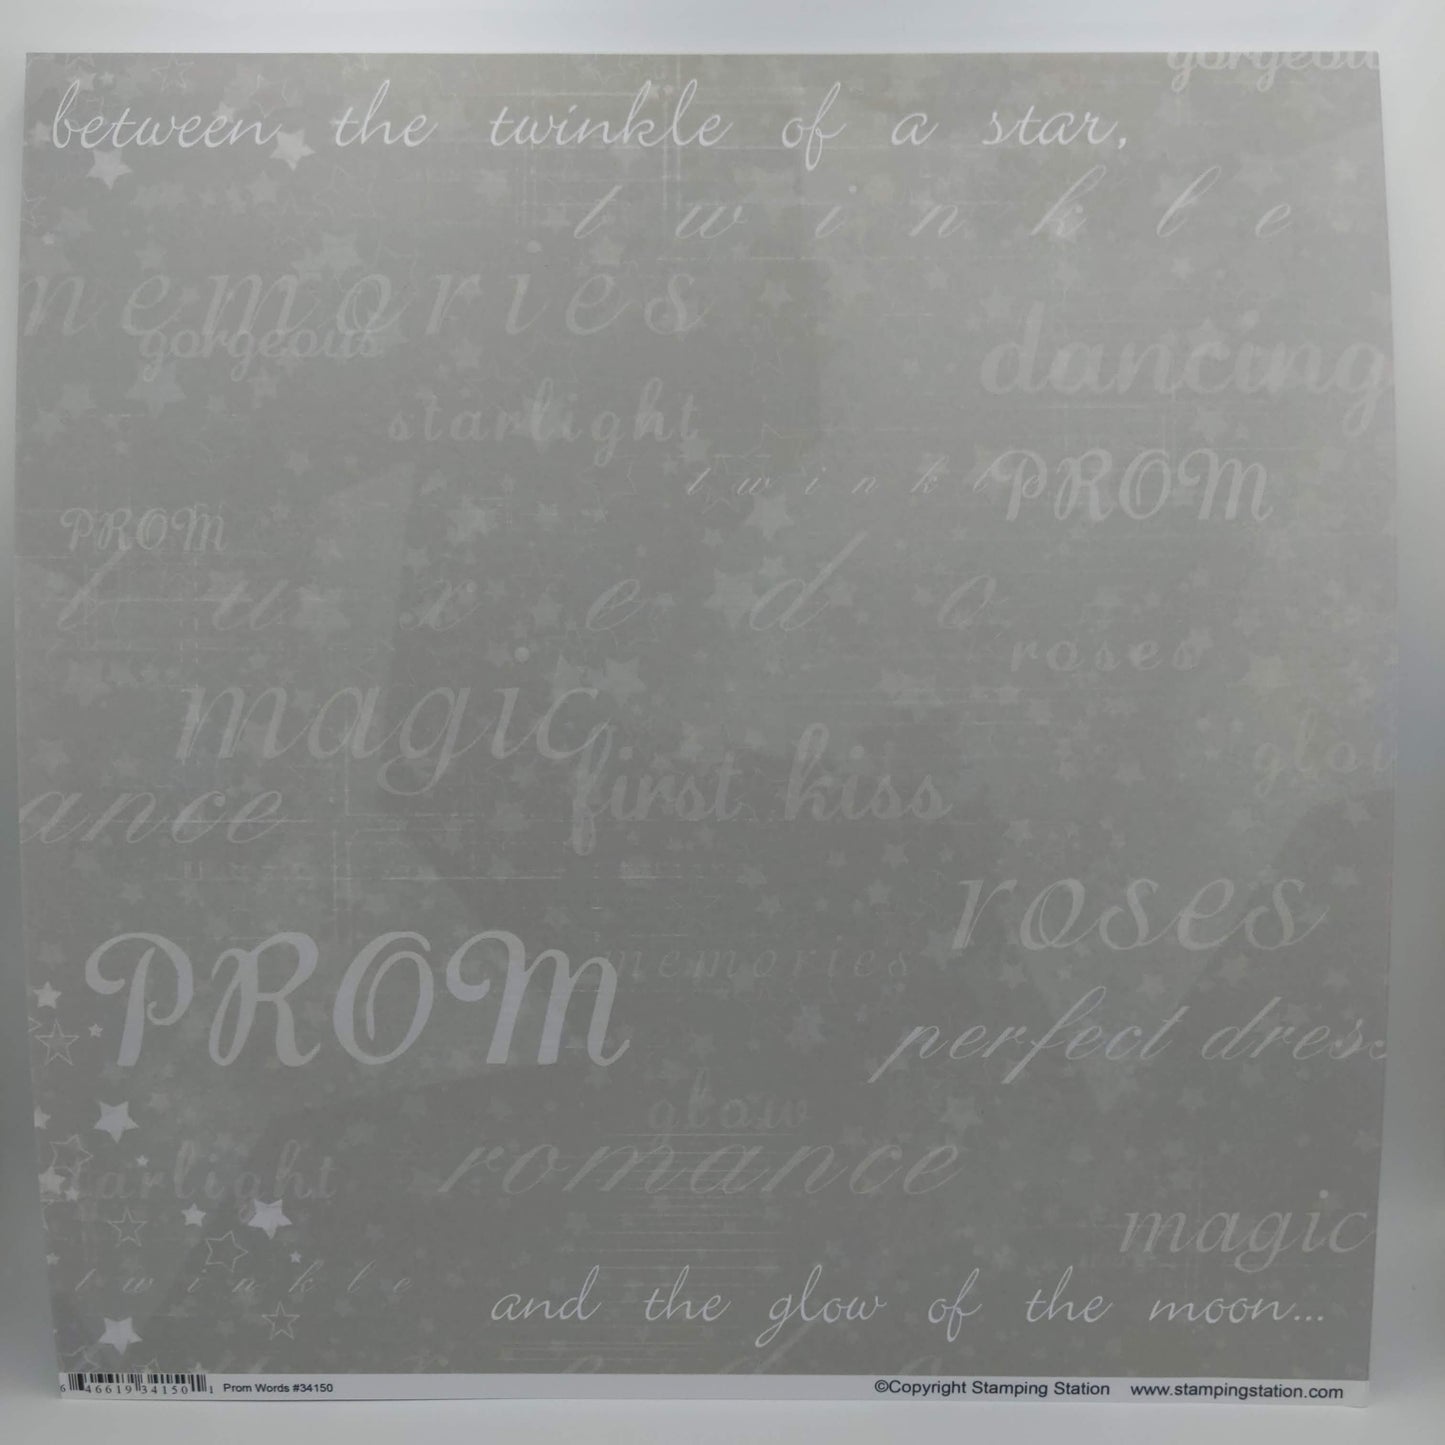 gorgeous
between the twinkle of a star,
twinkle
memories
gorgeous
dancing
starlight
twinkle
PROM
PROM
tuxedo
roses
magic
glow
first kiss
ance
roses
PROM
memories
perfect dress
glow
romance
starlight
magic
twinkle
and the glow of the moon...
6 46619 34150 1 Prom Words #34150 ©Copyright Stamping Station www.stampingstation.com